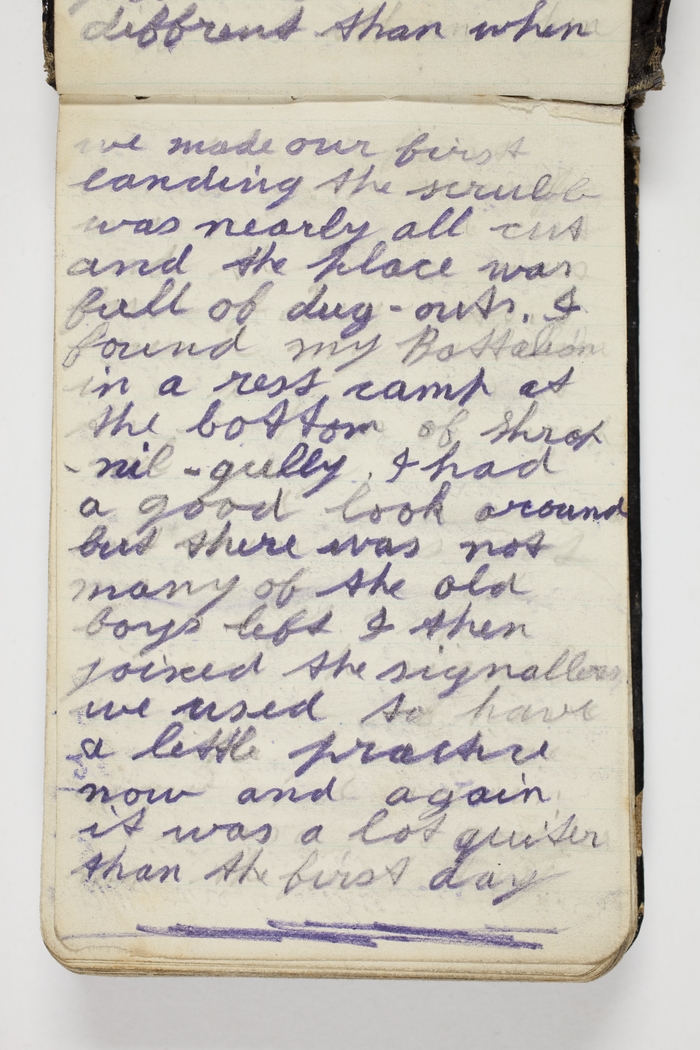 diffrent than when
we made our first
landing the scrubb
was nearly all cut
and the place was
full of dug-outs. I
found my Battalion
in a rest camp at
the bottom of Shrap
-nil-gully. I had
a good look around
but there was not
many of the old
boys left I then
joined the signallers
we used to have
a little practise
now and again
it was a lot quiter
than the first day